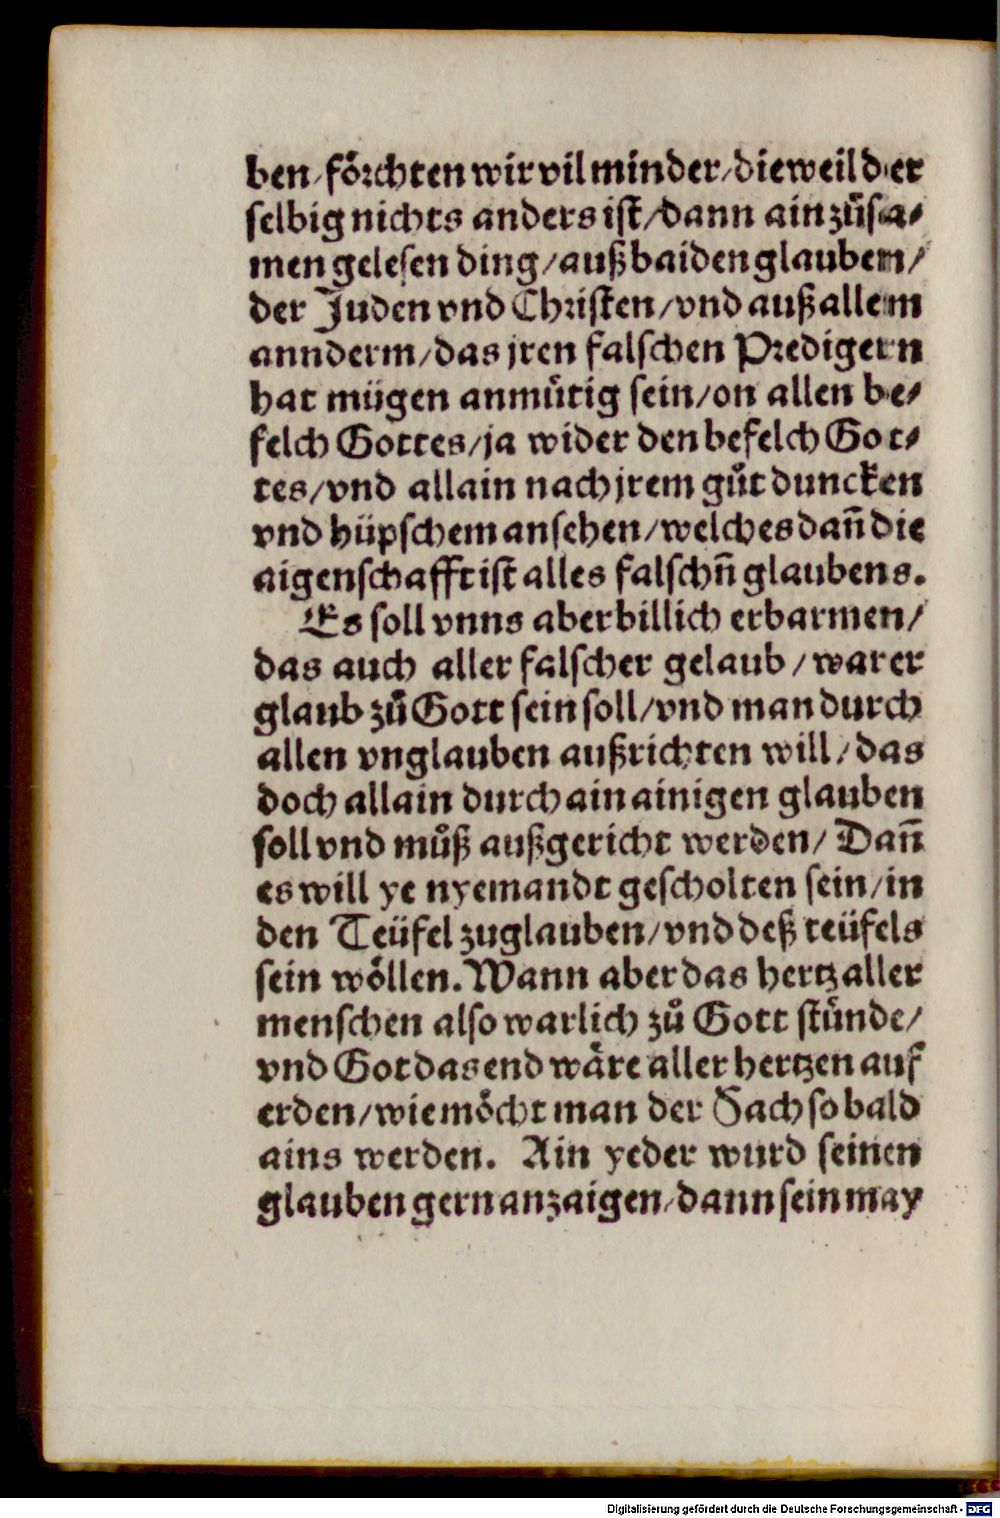 ben/ foͤrchten wir vil minder/ dieweil der
selbig nichts anders ist/ dann ain zuͦsa⸗
men gelesen ding/ auß baiden glauben/
der Juden vnd Christen/ vnd auß allem
annderm/ das jren falschen Predigern
hat muͤgen anmuͤtig sein/ on allen be⸗
felch Gottes/ ja wider den befelch Got⸗
tes/ vnd allain nach jrem guͦt duncken
vnd hüpschem ansehen/ welches dañ die
aigenschafft ist alles falschñ glaubens.
Es soll vnns aber billich erbarmen/
das auch aller falscher gelaub/ war er
glaub zuͦ Gott sein soll/ vnd man durch
allen vnglauben außrichten will/ das
doch allain durch ain ainigen glauben
soll vnd muͦß außgericht werden/ Dañ
es will ye nyemandt gescholten sein/ in
den Teüfel zuglauben/ vnd deß teüfels
sein woͤllen. Wann aber das hertz aller
menschen also warlich zuͦ Gott stuͤnde/
vnd Got das end waͤre aller hertzen auf
erden/ wie moͤcht man der Sach so bald
ains werden. Ain yeder wurd seinen
glauben gern anzaigen/ dann sein may
Digitalisierung gefördert durch die Deutsche Forschungsgemeinschaft - DFG